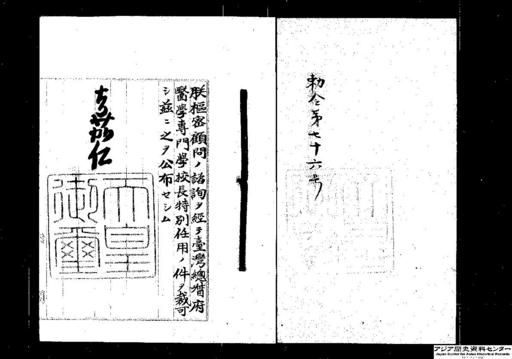 勅令第七十六号
朕樞密顧問ノ諮詢ヲ經テ臺灣總督府
醫學專門學校長特別任用ノ件ヲ裁可
シ茲ニ之ヲ公布セシム
嘉仁
天皇
御璽
アジア歴史資料センター
Japan Center for Asian Historical Records